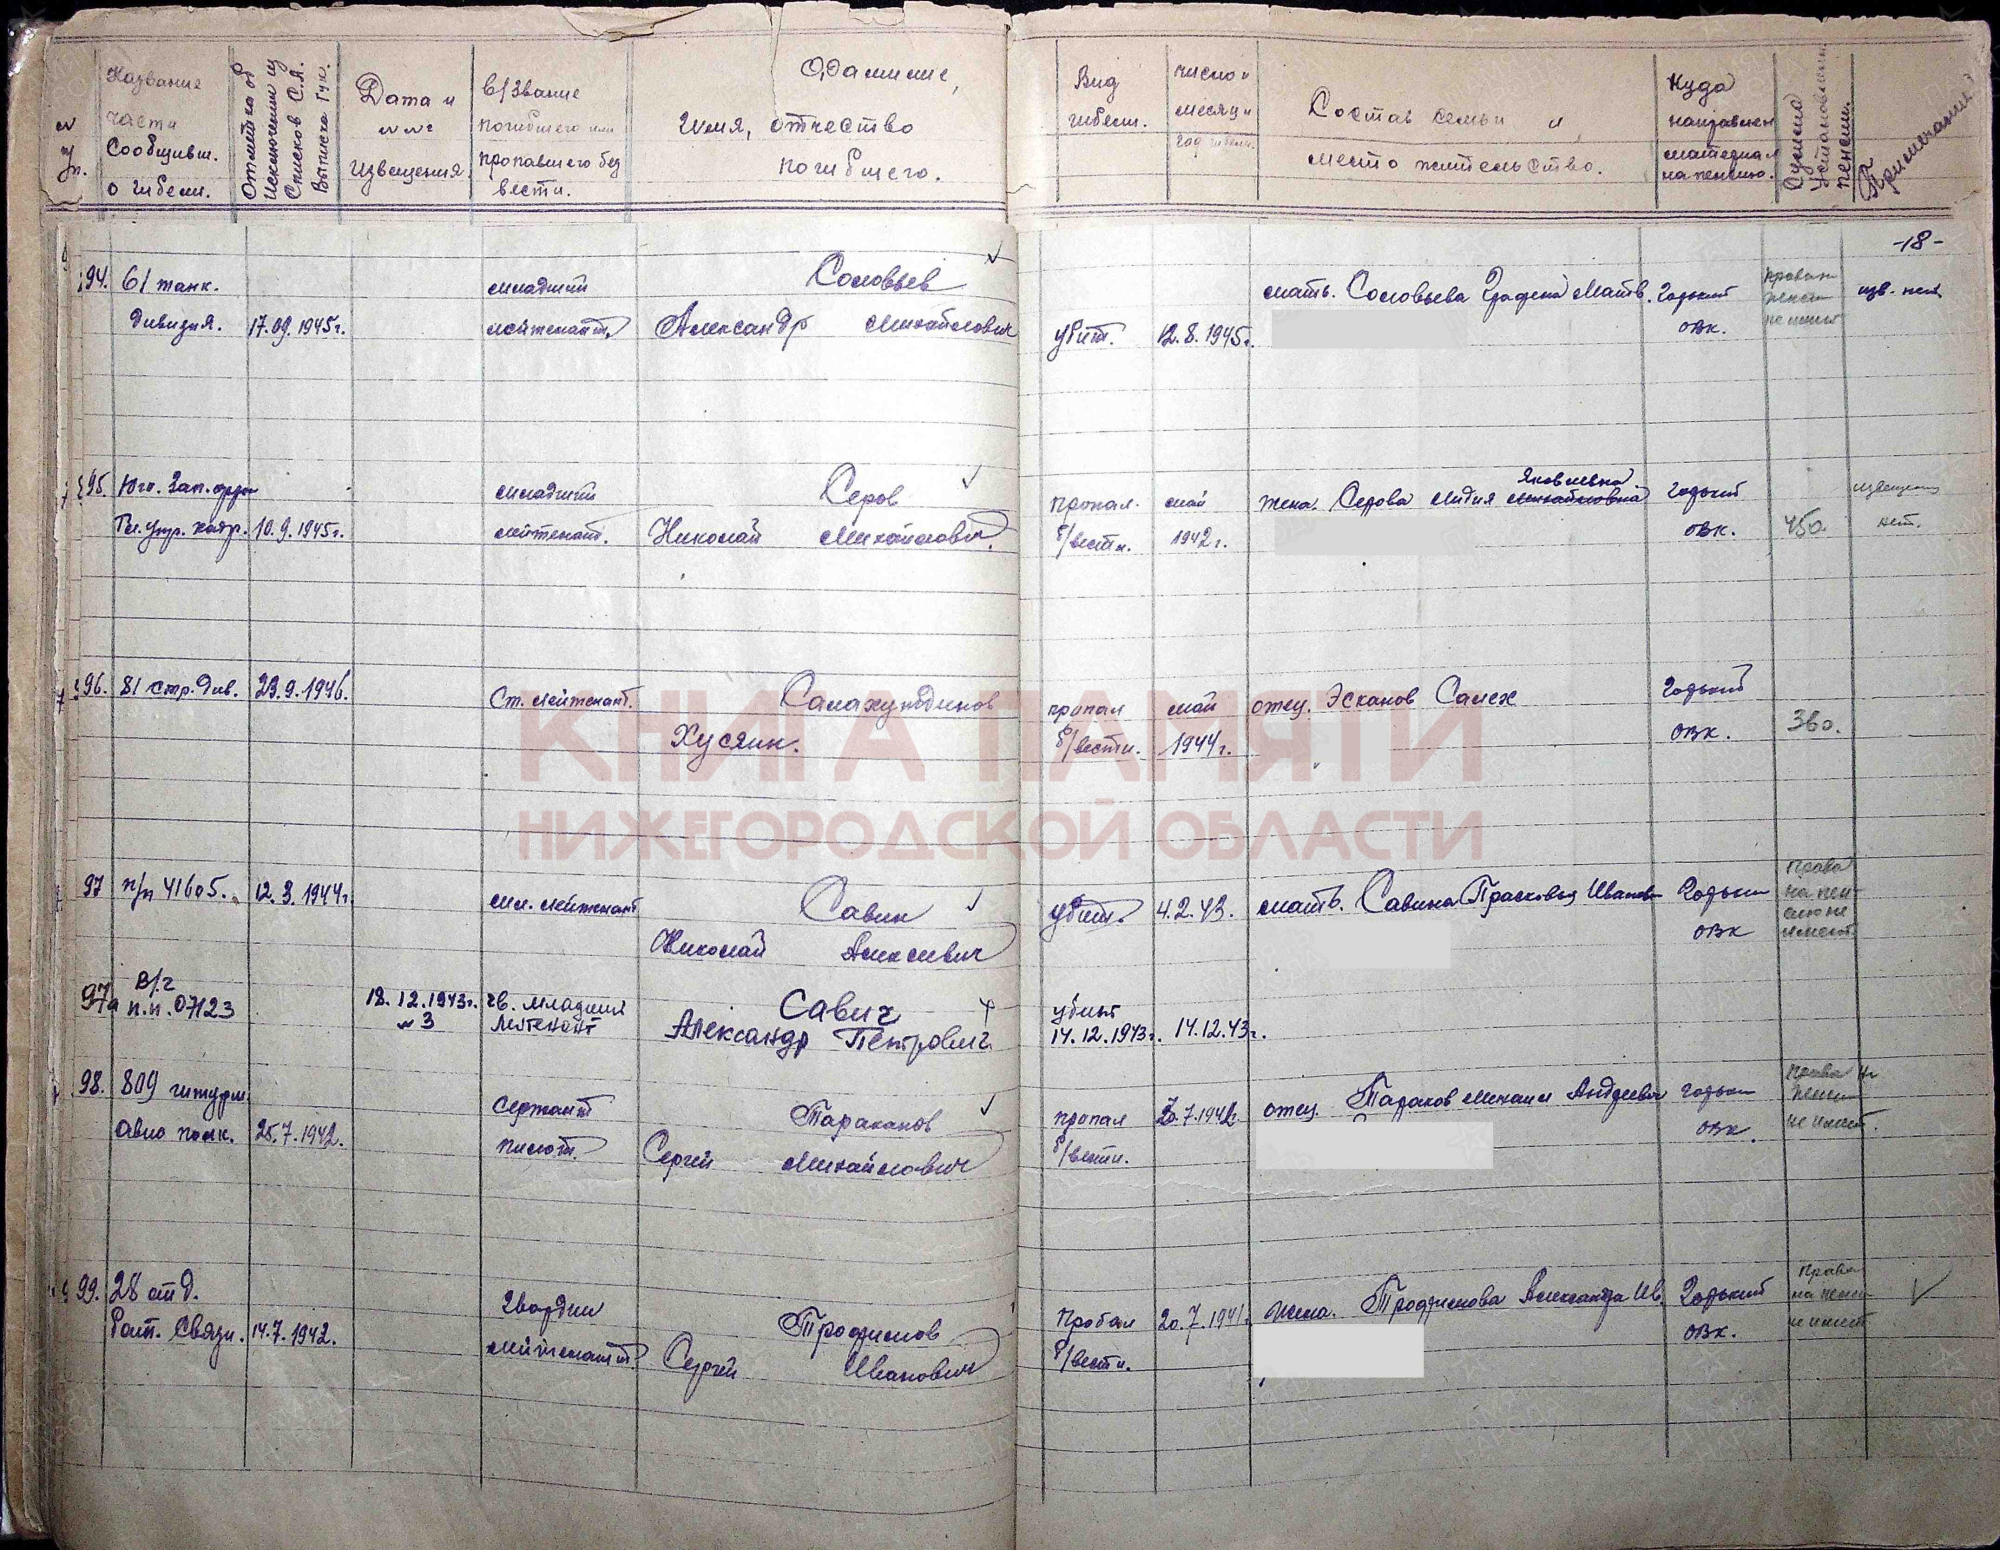 № п/п.
Название части Сообщивш. о гибели.
Отметка об Исключении из Списков С.А. Выписка Гук.
Дата и №№ извещения
в/звание погибшего или пропавшего без вести.
Фамилие, Имя, отчество погибшего.
Вид гибели.
число и месяц и год гибели.
Состав семьи и место жительство.
Куда направлен материал на пенсию.
Сумма Установленн. пенсии.
Примечание
-18-
94. 61 танк. младший Соловьев мать. Соловьева Матв. Горький изв. нет
дивизия. 17.09.1945г. лейтенант. Александр Михайлович убит. 12.8.1945г. ОВК.
95. Юго. Зап. фрон младший Серов пропал. май жена. Серова Лидия Михайловна Яковлевна Горький извещения
Гл. упр. кадр. 10.9.1945г. лейтенант. Николай Михайлович. б/вести. 1942г. ОВК. 450. нет.
96. 81 стр. див. 23.9.1946. Ст. лейтенант. Салахутдинов пропал май отец. Эсканов Салех Горький
Хусяин. б/вести. 1944г. ОВК. 360.
КНИГА ПАМЯТИ
НИЖЕГОРОДСКОЙ ОБЛАСТИ
97 п/п 41605. 12.3.1944г. мл. лейтенант Савин убит. 4.2.43. мать. Савина Прасковья Иванов Горьки Права на пен сию не имеет.
Николай Алексеевич ОВК
97а в/ч 18.12.1943г. гв. младший Савич убит
п.п. 07123 №3 летенант Александр Петрович 14.12.1943г. 14.12.43г.
98. 809 штурм. сержант Тараканов пропал 20.7.1942. отец. Тараков Михаил Андреевич Горьки Права на пенси не имеет.
авио полк. 25.7.1942. пилот. Сергей Михайлович б/вести. ОВК.
99. 28 отд. гвардии Трофимов Пропал 20.7.1941г. жена. Трофимова Александра Ив. Горький Права на пенси не имеет
Бат. Связи. 14.7.1942. лейтенант. Сергей Иванович б/вести. ОВК.